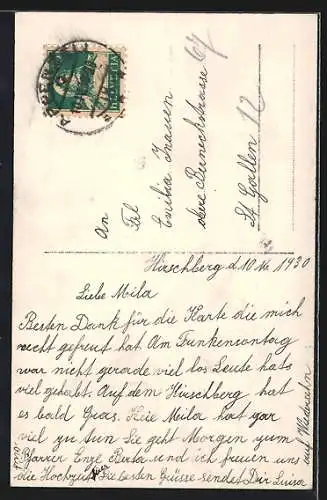 HELVETIA
An
Frl
Emilia Inauen
obere Berneckstrasse 67
St Gallen 12
Hirschberg d 10 1930
Liebe Mila
Besten Dank für die Karte die mich
recht gefreut hat. Am Funkensontag
war nicht gerade viel los Leute hats
viel gehabt. Auf dem Hirschberg hat
es bald Gras. Mila hat gar
viel zu tun Sie geht Morgen zum
Pfarrer Enz. Berta und ich freuen uns
die Hochzeit Die besten Grüsse sendet Dir Luisa
auf Wiedersehn